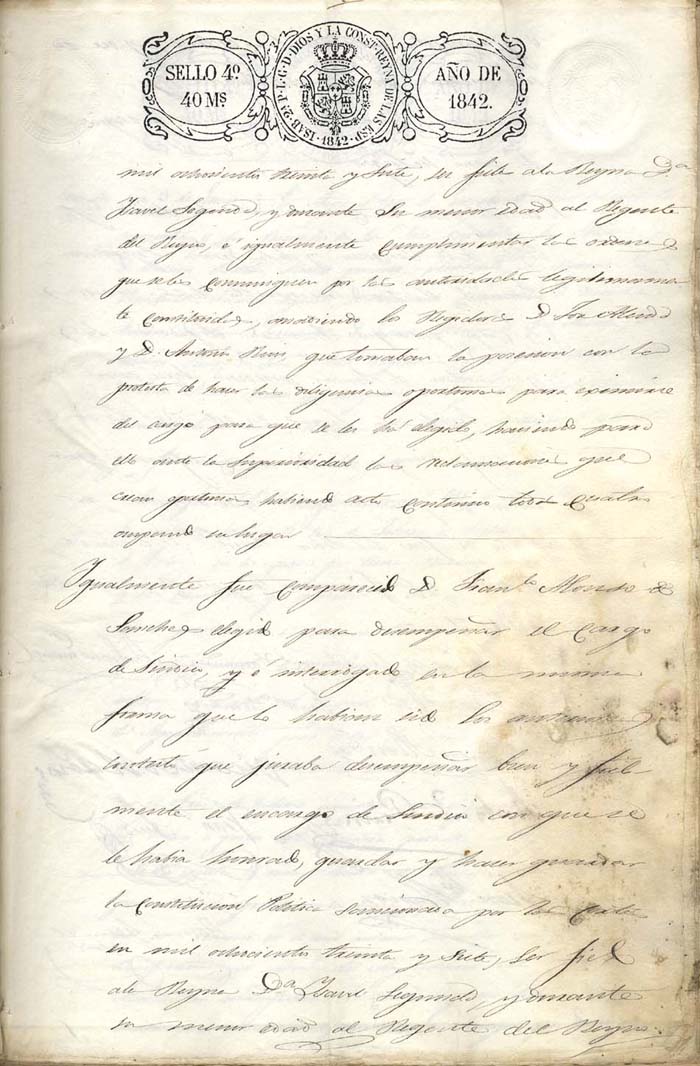 SELLO 4º
40 Ms
ISAB. 2ª P. L. G. D. DIOS Y LA CONST. REYNA DE LAS ESP.
1842
AÑO DE
1842.
mil ochocientos treinta y siete, ser fiel a la Reyna Dª
Isavel Segunda, y durante su menor edad al Regente
del Reyno, e igualmente cumplimentar las ordenes
que se les comuniquen por las autoridades legitimamen
te constituidas, añadiendo los Regidores D.
y D. Antonio Ruis, que tomaban la posesion con la
protesta de hacer las diligencias oportunas para eximirse
del cargo para que se les há elegido, haciendo para
ello ante la superioridad las reclamaciones que
crean oportunas, habiendo acto continuo todos cuatro
ocupado su lugar
Igualmente fue comparecido D. Franco. Alonso de
Sanches elegido para desempeñar el cargo
de Sindico, y é interrogado en la misma
forma que lo habian sido los anteriores
contestó que juraba desempeñar bien y fiel
mente el encargo de Sindico con que se
le habia honrado, guardar y hacer guardar
la Constitucion Politica sancionada por las Cortes
en mil ochocientos treinta y siete, ser fiel
a la Reyna Dª Isavel Segunda, y durante
su menor edad al Regente del Reyno.